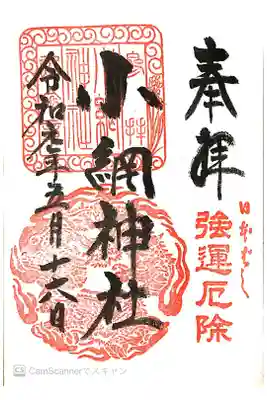 奉拝
日本ばし
強運厄除
小網神社
令和元年五月十六日
CS CamScannerでスキャン